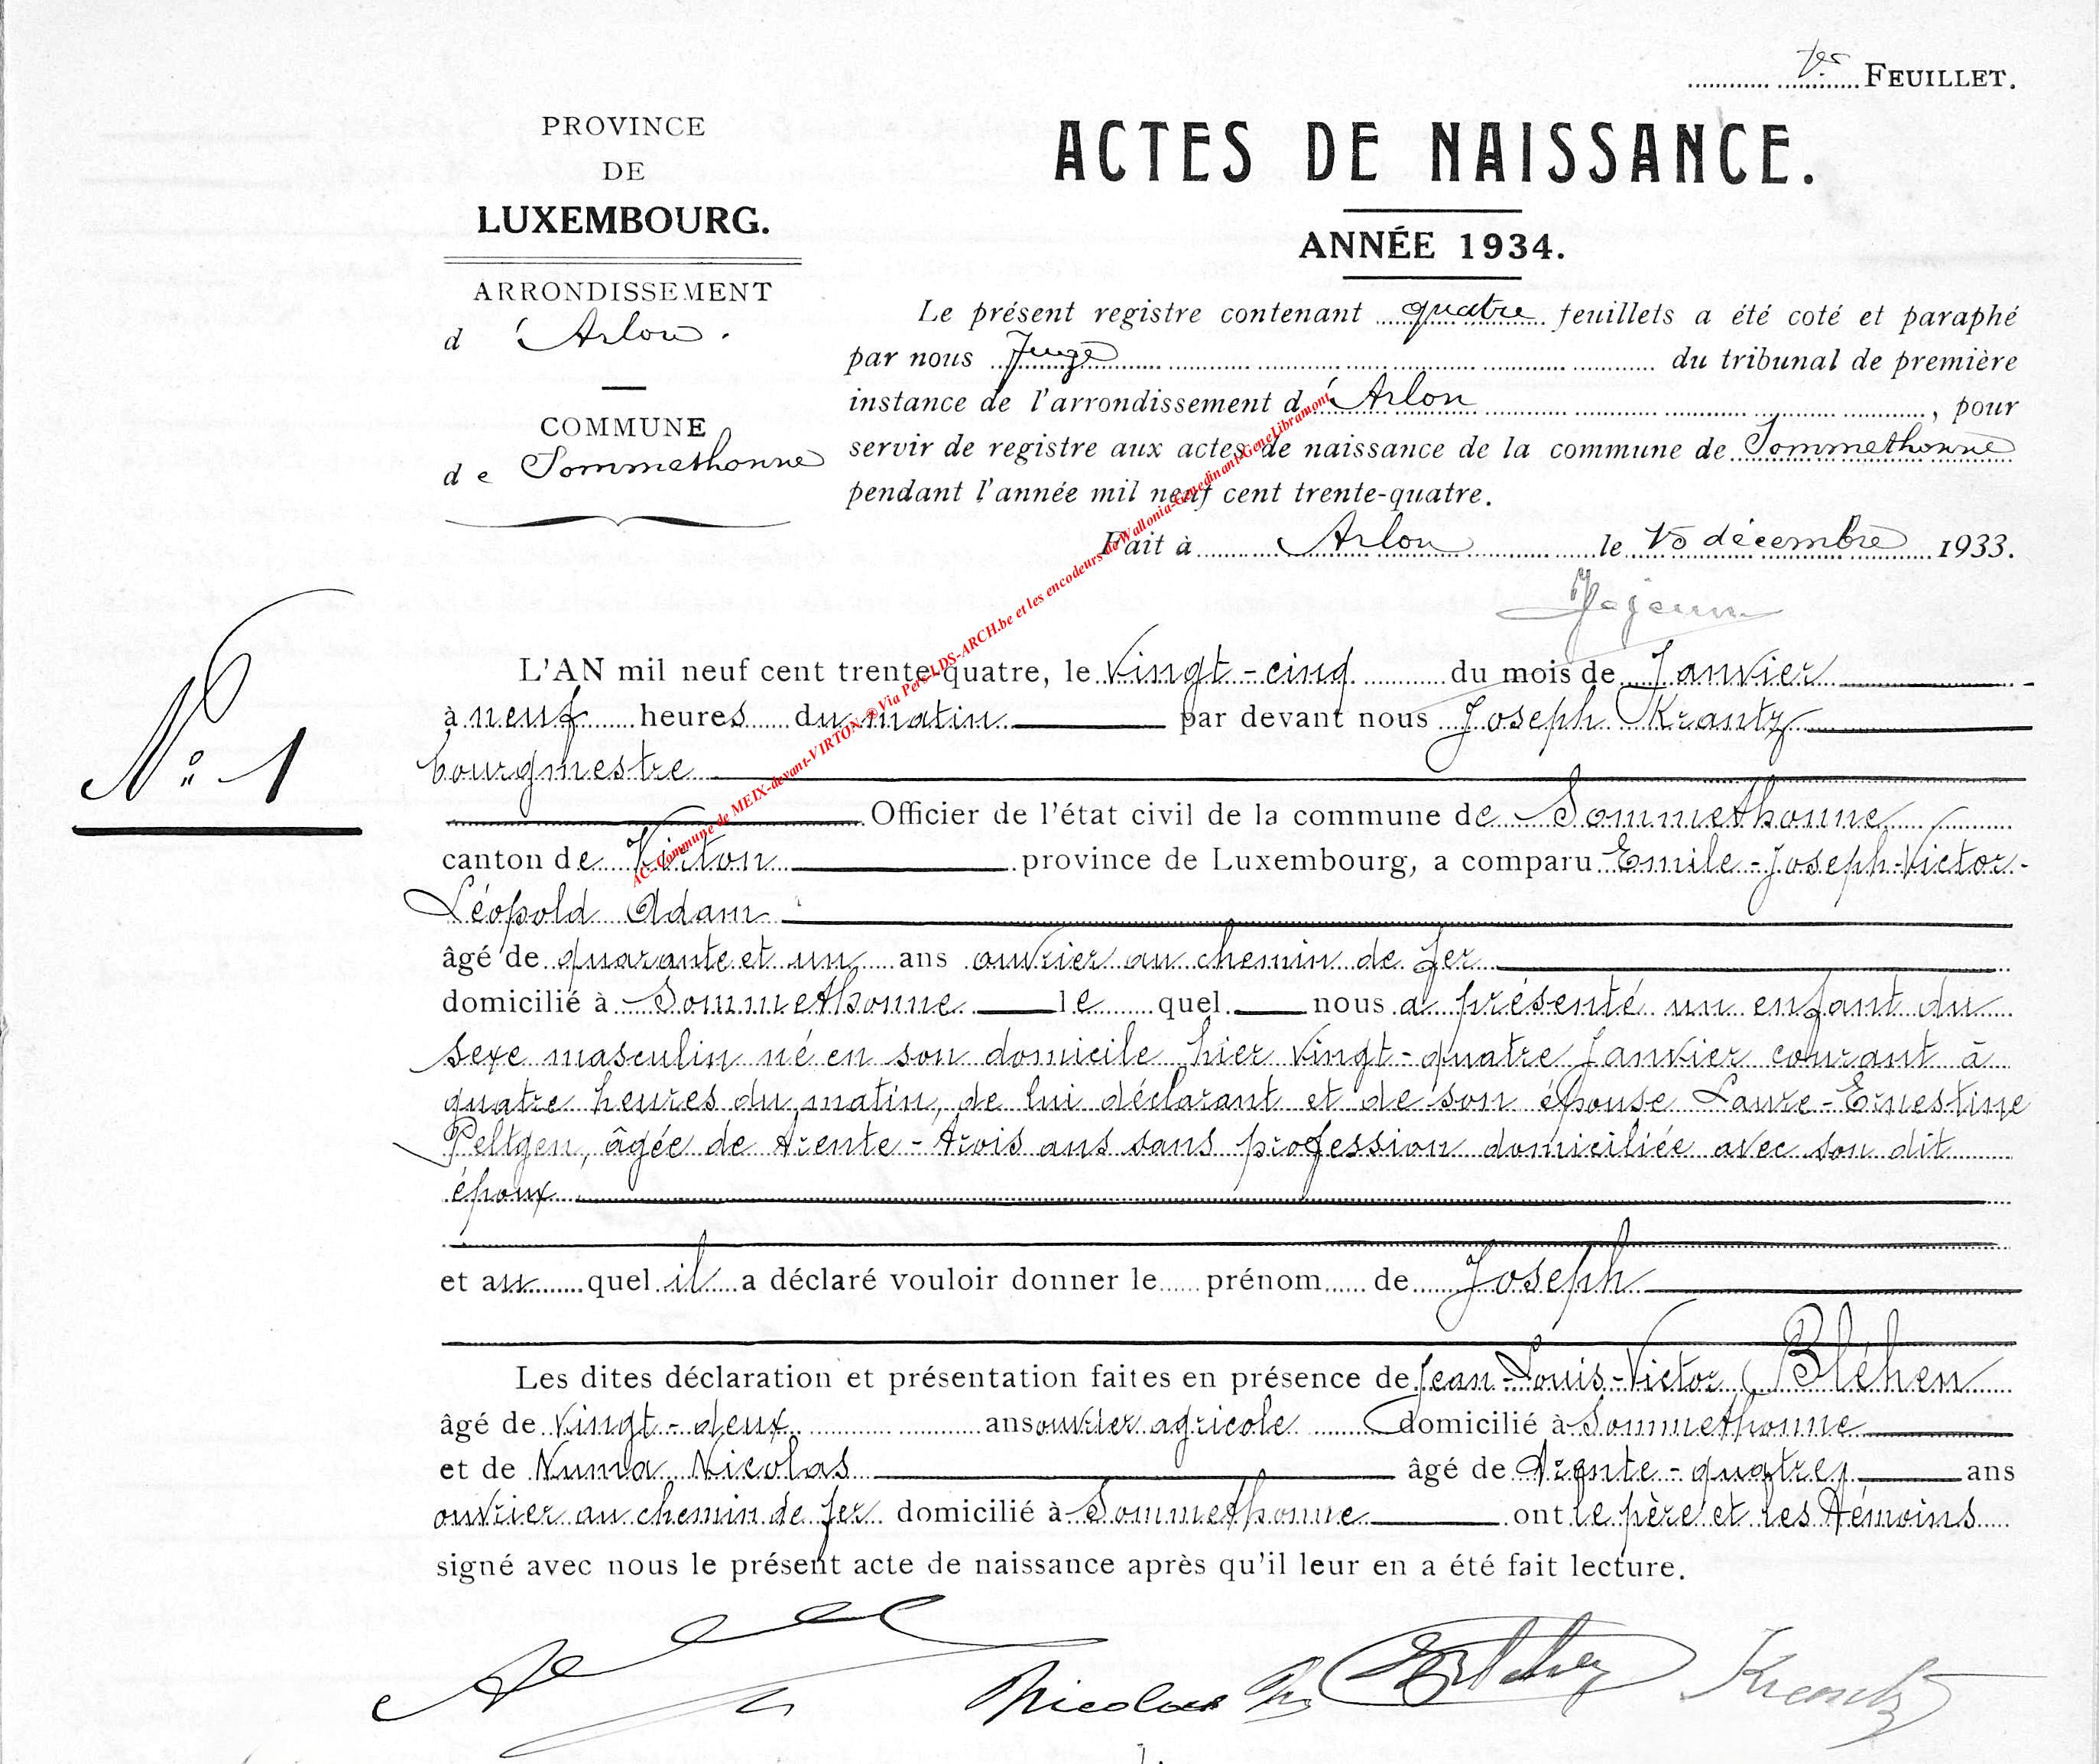 1er FEUILLET.
PROVINCE
DE
LUXEMBOURG.
ARRONDISSEMENT
d'Arlon.
COMMUNE
de Sommethonne
ACTES DE NAISSANCE.
ANNÉE 1934.
Le présent registre contenant quatre feuillets a été coté et paraphé
par nous Juge du tribunal de première
instance de l'arrondissement d'Arlon, pour
servir de registre aux actes de naissance de la commune de Sommethonne
pendant l'année mil neuf cent trente-quatre.
Fait à Arlon le 15 décembre 1933.
N° 1
L'AN mil neuf cent trente-quatre, le vingt-cinq du mois de Janvier
à neuf heures du matin par devant nous Joseph Krantz
bourgmestre
Officier de l'état civil de la commune de Sommethonne
canton de Virton province de Luxembourg, a comparu Emile-Joseph-Victor-
Léopold Adam
âgé de quarante et un ans ouvrier au chemin de fer
domicilié à Sommethonne lequel nous a présenté un enfant du
sexe masculin né en son domicile hier vingt-quatre Janvier courant à
quatre heures du matin, de lui déclarant et de son épouse Laure-Ernestine
Peltgen, âgée de trente-trois ans sans profession domiciliée avec son dit
époux
et au quel il a déclaré vouloir donner le prénom de Joseph
Les dites déclaration et présentation faites en présence de Jean-Louis-Victor Bléhen
âgé de vingt-deux ans ouvrier agricole domicilié à Sommethonne
et de Numa Nicolas âgé de trente-quatre ans
ouvrier au chemin de fer domicilié à Sommethonne ont le père et les témoins
signé avec nous le présent acte de naissance après qu'il leur en a été fait lecture.
Nicolas Krantz
AC-Commune de MEIX-devant-VIRTON ® Via Pere-LDS-ARCH.be et les encodeurs de Wallonia-Genedinant-GeneLibramont